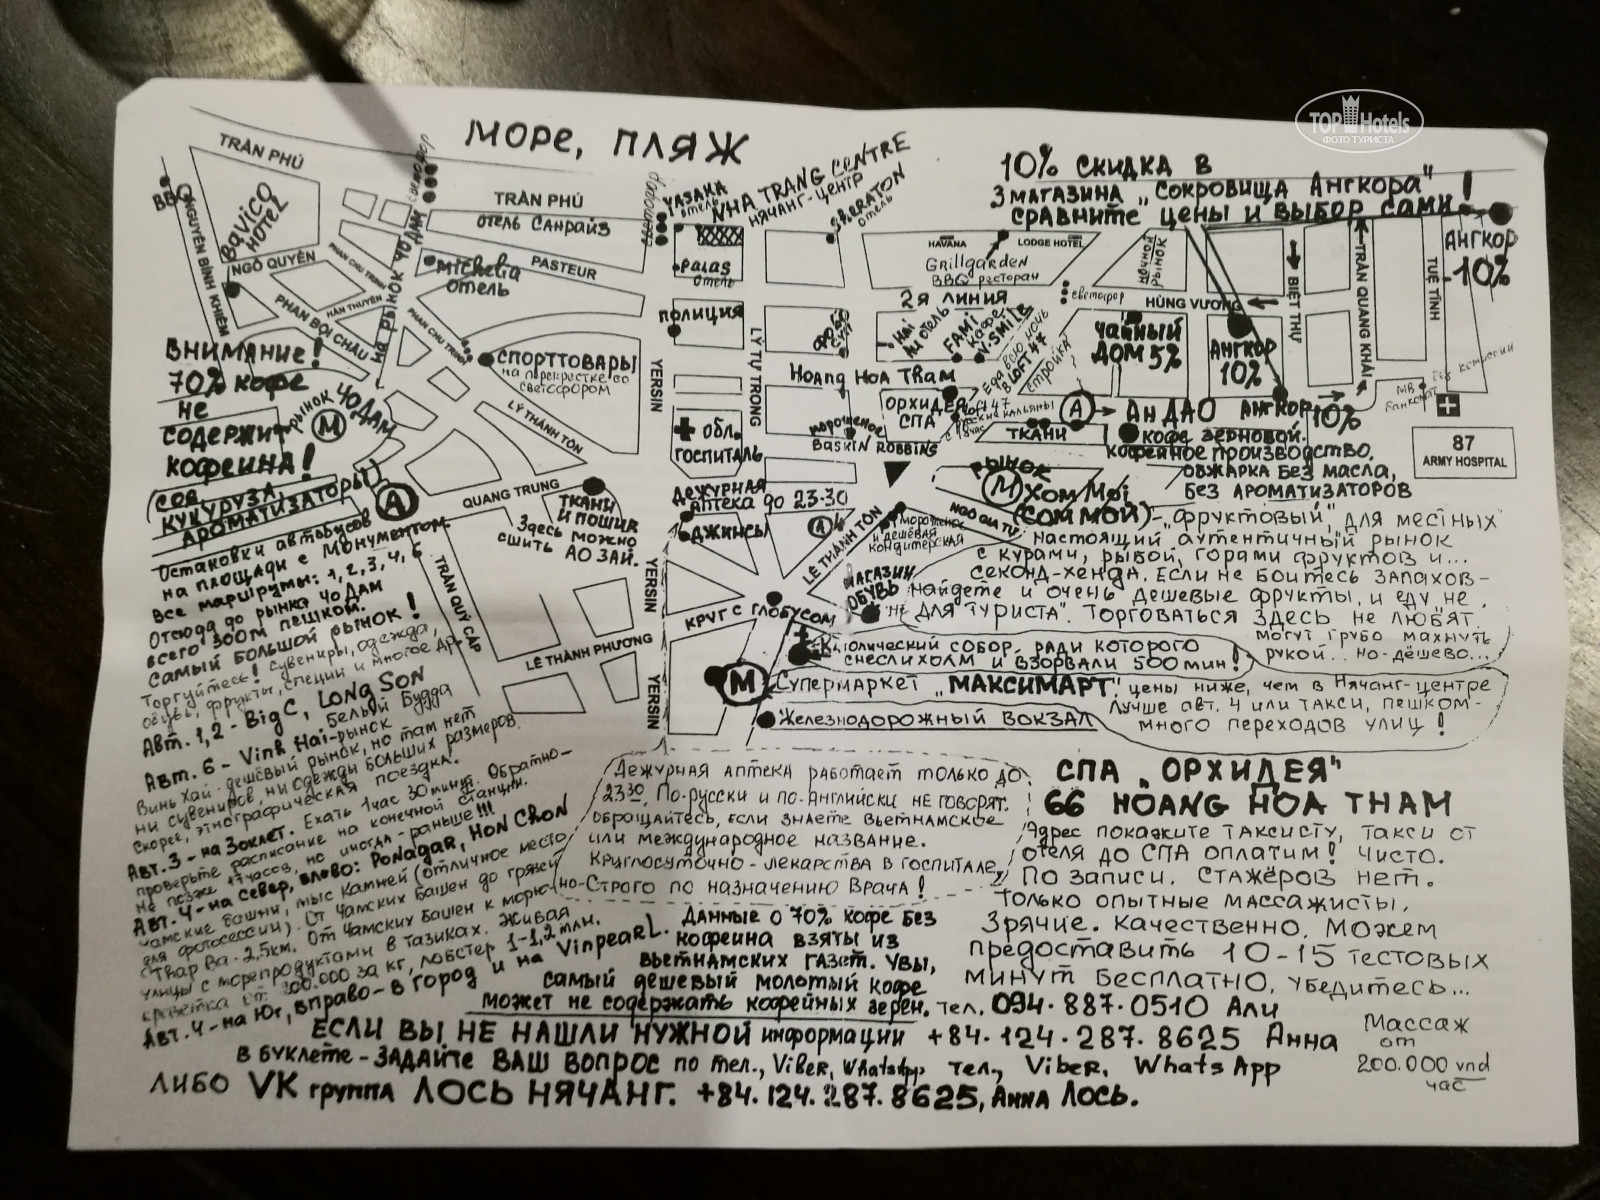 МОРЕ, ПЛЯЖ
TOP Hotels
ФОТО ТУРИСТА
10% СКИДКА В
3 МАГАЗИНА „СОКРОВИЩА АНГКОРА"!
СРАВНИТЕ ЦЕНЫ И ВЫБОР САМИ
АНГКОР
10%
TRẦN PHÚ
BBQ
NGUYỄN BỈNH KHIÊM
BAVICO
HOTEL
NGÔ QUYỀN
PHAN CHU TRINH
HÀN THUYÊN
PHAN BỘI CHÂU
PHAN CHU TRINH
НА РЫНОК ЧО ДАМ
светофор
TRẦN PHÚ
ОТЕЛЬ САНРАЙЗ
PASTEUR
Michelia
ОТЕЛЬ
YASAKA
отель
NHA TRANG CENTRE
НЯЧАНГ-ЦЕНТР
SHERATON
отель
PALAS
отель
HAVANA
LODGE HOTEL
Grillgarden
BBQ ресторан
НОЧНОЙ
РЫНОК
2Я ЛИНИЯ
светофор
HÙNG VƯƠNG
BIỆT THỰ
TRẦN QUANG KHẢI
TUỆ TĨNH
ПОЛИЦИЯ
FAMI
кафе
V.SMILE
ЧАЙНЫЙ
ДОМ 5%
АНГКОР
10%
СПОРТТОВАРЫ
на перекрестке со
светофором
YERSIN
LÝ TỰ TRỌNG
HOANG HOA THAM
ОРХИДЕЯ
СПА
Еда всю ночь
в LOFT 47
стройка
А
АН ДАО
АНГКОР 10%
без комиссии
МВ
банкомат
87
ARMY HOSPITAL
ВНИМАНИЕ!
70% кофе
не
СОДЕРЖИТ
КОФЕИНА!
(СОЯ,
КУКУРУЗА,
АРОМАТИЗАТОРЫ)
РЫНОК ЧО ДАМ
М
А
LÝ THÁNH TÔN
ОБЛ.
ГОСПИТАЛЬ
мороженое
BASKIN ROBBINS
ТКАНИ
КОФЕ ЗЕРНОВОЙ.
КОФЕЙНОЕ ПРОИЗВОДСТВО,
ОБЖАРКА БЕЗ МАСЛА,
БЕЗ АРОМАТИЗАТОРОВ
QUANG TRUNG
ТКАНИ
И ПОШИВ
Здесь можно
СШИТЬ АО ЗАЙ.
ДЕЖУРНАЯ
АПТЕКА ДО 23-30
ДЖИНСЫ
LÊ THÁNH TÔN
мороженое
и дешёвая
кондитерская
NGÔ GIA TỰ
РЫНОК
М ХОМ МОЙ
(СОМ МОЙ)-„ФРУКТОВЫЙ", ДЛЯ МЕСТНЫХ
НАСТОЯЩИЙ АУТЕНТИЧНЫЙ РЫНОК
С КУРАМИ, РЫБОЙ, ГОРАМИ ФРУКТОВ И...
СЕКОНД-ХЕНДА. ЕСЛИ НЕ БОИТЕСЬ ЗАПАХОВ-
НАЙДЕТЕ И ОЧЕНЬ ДЕШЕВЫЕ ФРУКТЫ, И ЕДУ „НЕ
ДЛЯ ТУРИСТА". ТОРГОВАТЬСЯ ЗДЕСЬ НЕ ЛЮБЯТ.
МОГУТ ГРУБО МАХНУТЬ
РУКОЙ... НО-ДЁШЕВО...
Остановки автобусов
на площади с Монументом
Все маршруты: 1, 2, 3, 4, 6
Отсюда до рынка ЧО ДАМ
всего 300м пешком.
Самый большой рынок!
Торгуйтесь! Сувениры, одежда,
обувь, фрукты, специи и многое др.
TRẦN QUÝ CÁP
YERSIN
КРУГ С ГЛОБУСОМ
МАГАЗИН
ОБУВЬ
LÊ THÀNH PHƯƠNG
Католический СОБОР, РАДИ КОТОРОГО
СНЕСЛИ ХОЛМ И ВЗОРВАЛИ 500 МИН!
М
СУПЕРМАРКЕТ „МАКСИМАРТ". ЦЕНЫ НИЖЕ, ЧЕМ В НЯЧАНГ-ЦЕНТРЕ
ЛУЧШЕ АВТ. 4 ИЛИ ТАКСИ, ПЕШКОМ-
МНОГО ПЕРЕХОДОВ УЛИЦ!
YERSIN
ЖЕЛЕЗНОДОРОЖНЫЙ ВОКЗАЛ
Авт. 1,2 - Big C, LONG SON
Белый Будда
Авт. 6 - Vinh Hai-рынок
Винь Хай-дешёвый рынок, но там нет
ни сувениров, ни одежды больших размеров.
Скорее, этнографическая поездка.
Авт. 3 - на Зоклет. Ехать 1час 30минут. Обратно-
проверьте расписание на конечной станции.
не позже 17часов, но иногда - раньше!!!
Авт. 4 - на север, влево: PONAGAR, HON CHON
Чамские башни, мыс камней (отличное место
для фотосессии). От Чамских Башен до грязи
Thap Ba - 2,5км. От Чамских Башен к морю-
улицы с морепродуктами в тазиках. Живая
креветка от 300.000 за кг, лобстер 1-1,2млн.
Авт. 4 - на юг, вправо - в город и на VinpearL.
ДЕЖУРНАЯ АПТЕКА РАБОТАЕТ ТОЛЬКО ДО
23.30. ПО-РУССКИ И ПО-АНГЛИЙСКИ НЕ ГОВОРЯТ.
ОБРАЩАЙТЕСЬ, ЕСЛИ ЗНАЕТЕ ВЬЕТНАМСКОЕ
ИЛИ МЕЖДУНАРОДНОЕ НАЗВАНИЕ.
КРУГЛОСУТОЧНО - ЛЕКАРСТВА В ГОСПИТАЛЕ,
НО-СТРОГО ПО НАЗНАЧЕНИЮ ВРАЧА!
СПА „ОРХИДЕЯ"
66 HOANG HOA THAM
АДРЕС ПОКАЖИТЕ ТАКСИСТУ, ТАКСИ ОТ
ОТЕЛЯ ДО СПА ОПЛАТИМ! ЧИСТО.
ПО ЗАПИСИ. СТАЖЁРОВ НЕТ.
ТОЛЬКО ОПЫТНЫЕ МАССАЖИСТЫ,
ЗРЯЧИЕ. КАЧЕСТВЕННО. МОЖЕМ
ПРЕДОСТАВИТЬ 10-15 ТЕСТОВЫХ
МИНУТ БЕСПЛАТНО, УБЕДИТЕСЬ...
ДАННЫЕ О 70% КОФЕ БЕЗ
КОФЕИНА ВЗЯТЫ ИЗ
ВЬЕТНАМСКИХ ГАЗЕТ. УВЫ,
САМЫЙ ДЕШЕВЫЙ МОЛОТЫЙ КОФЕ
МОЖЕТ НЕ СОДЕРЖАТЬ КОФЕЙНЫХ ЗЕРЕН.
ТЕЛ. 094.887.0510 АЛИ
+84.124.287.8625 Анна
ТЕЛ., Viber, WhatsApp
Массаж
от
200.000 vnd
час
ЕСЛИ ВЫ НЕ НАШЛИ НУЖНОЙ ИНФОРМАЦИИ
В БУКЛЕТЕ - ЗАДАЙТЕ ВАШ ВОПРОС ПО тел., Viber, WhatsApp
ЛИБО VK группа ЛОСЬ НЯЧАНГ. +84.124.287.8625, Анна ЛОСЬ.